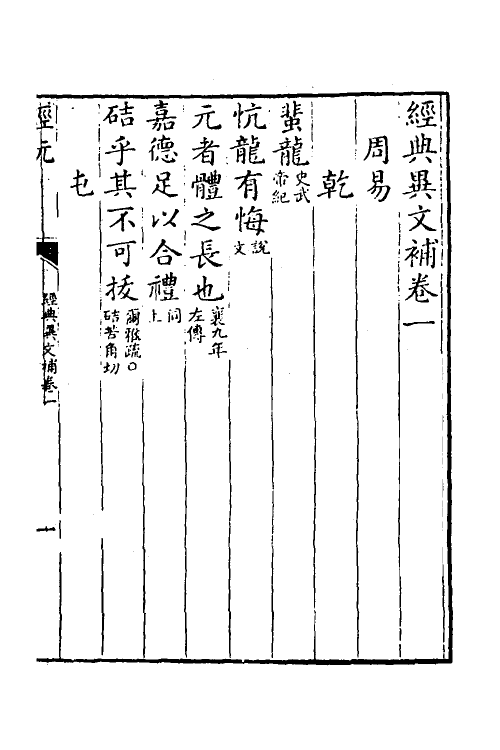 經典異文補卷一
周易
乾
蜚龍史武帝紀
忼龍有悔說文
元者體之長也襄九年左傳
嘉德足以合禮同上
硈乎其不可拔爾雅疏○硈苦角切
屯
經元
經典異文補卷一
一